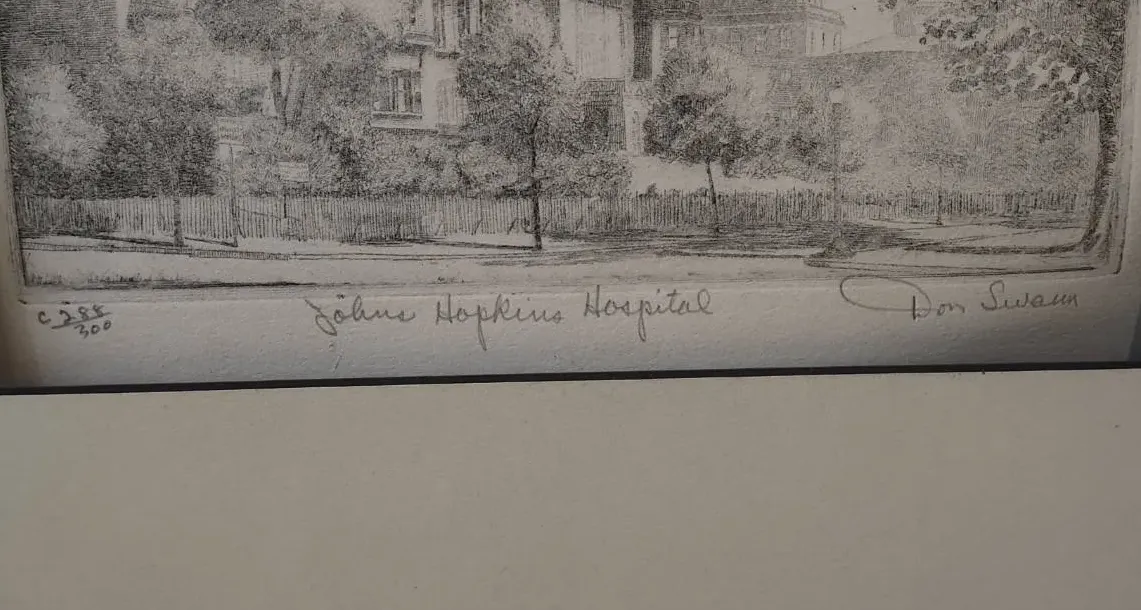 C 288/300
Johns Hopkins Hospital
Don Swann